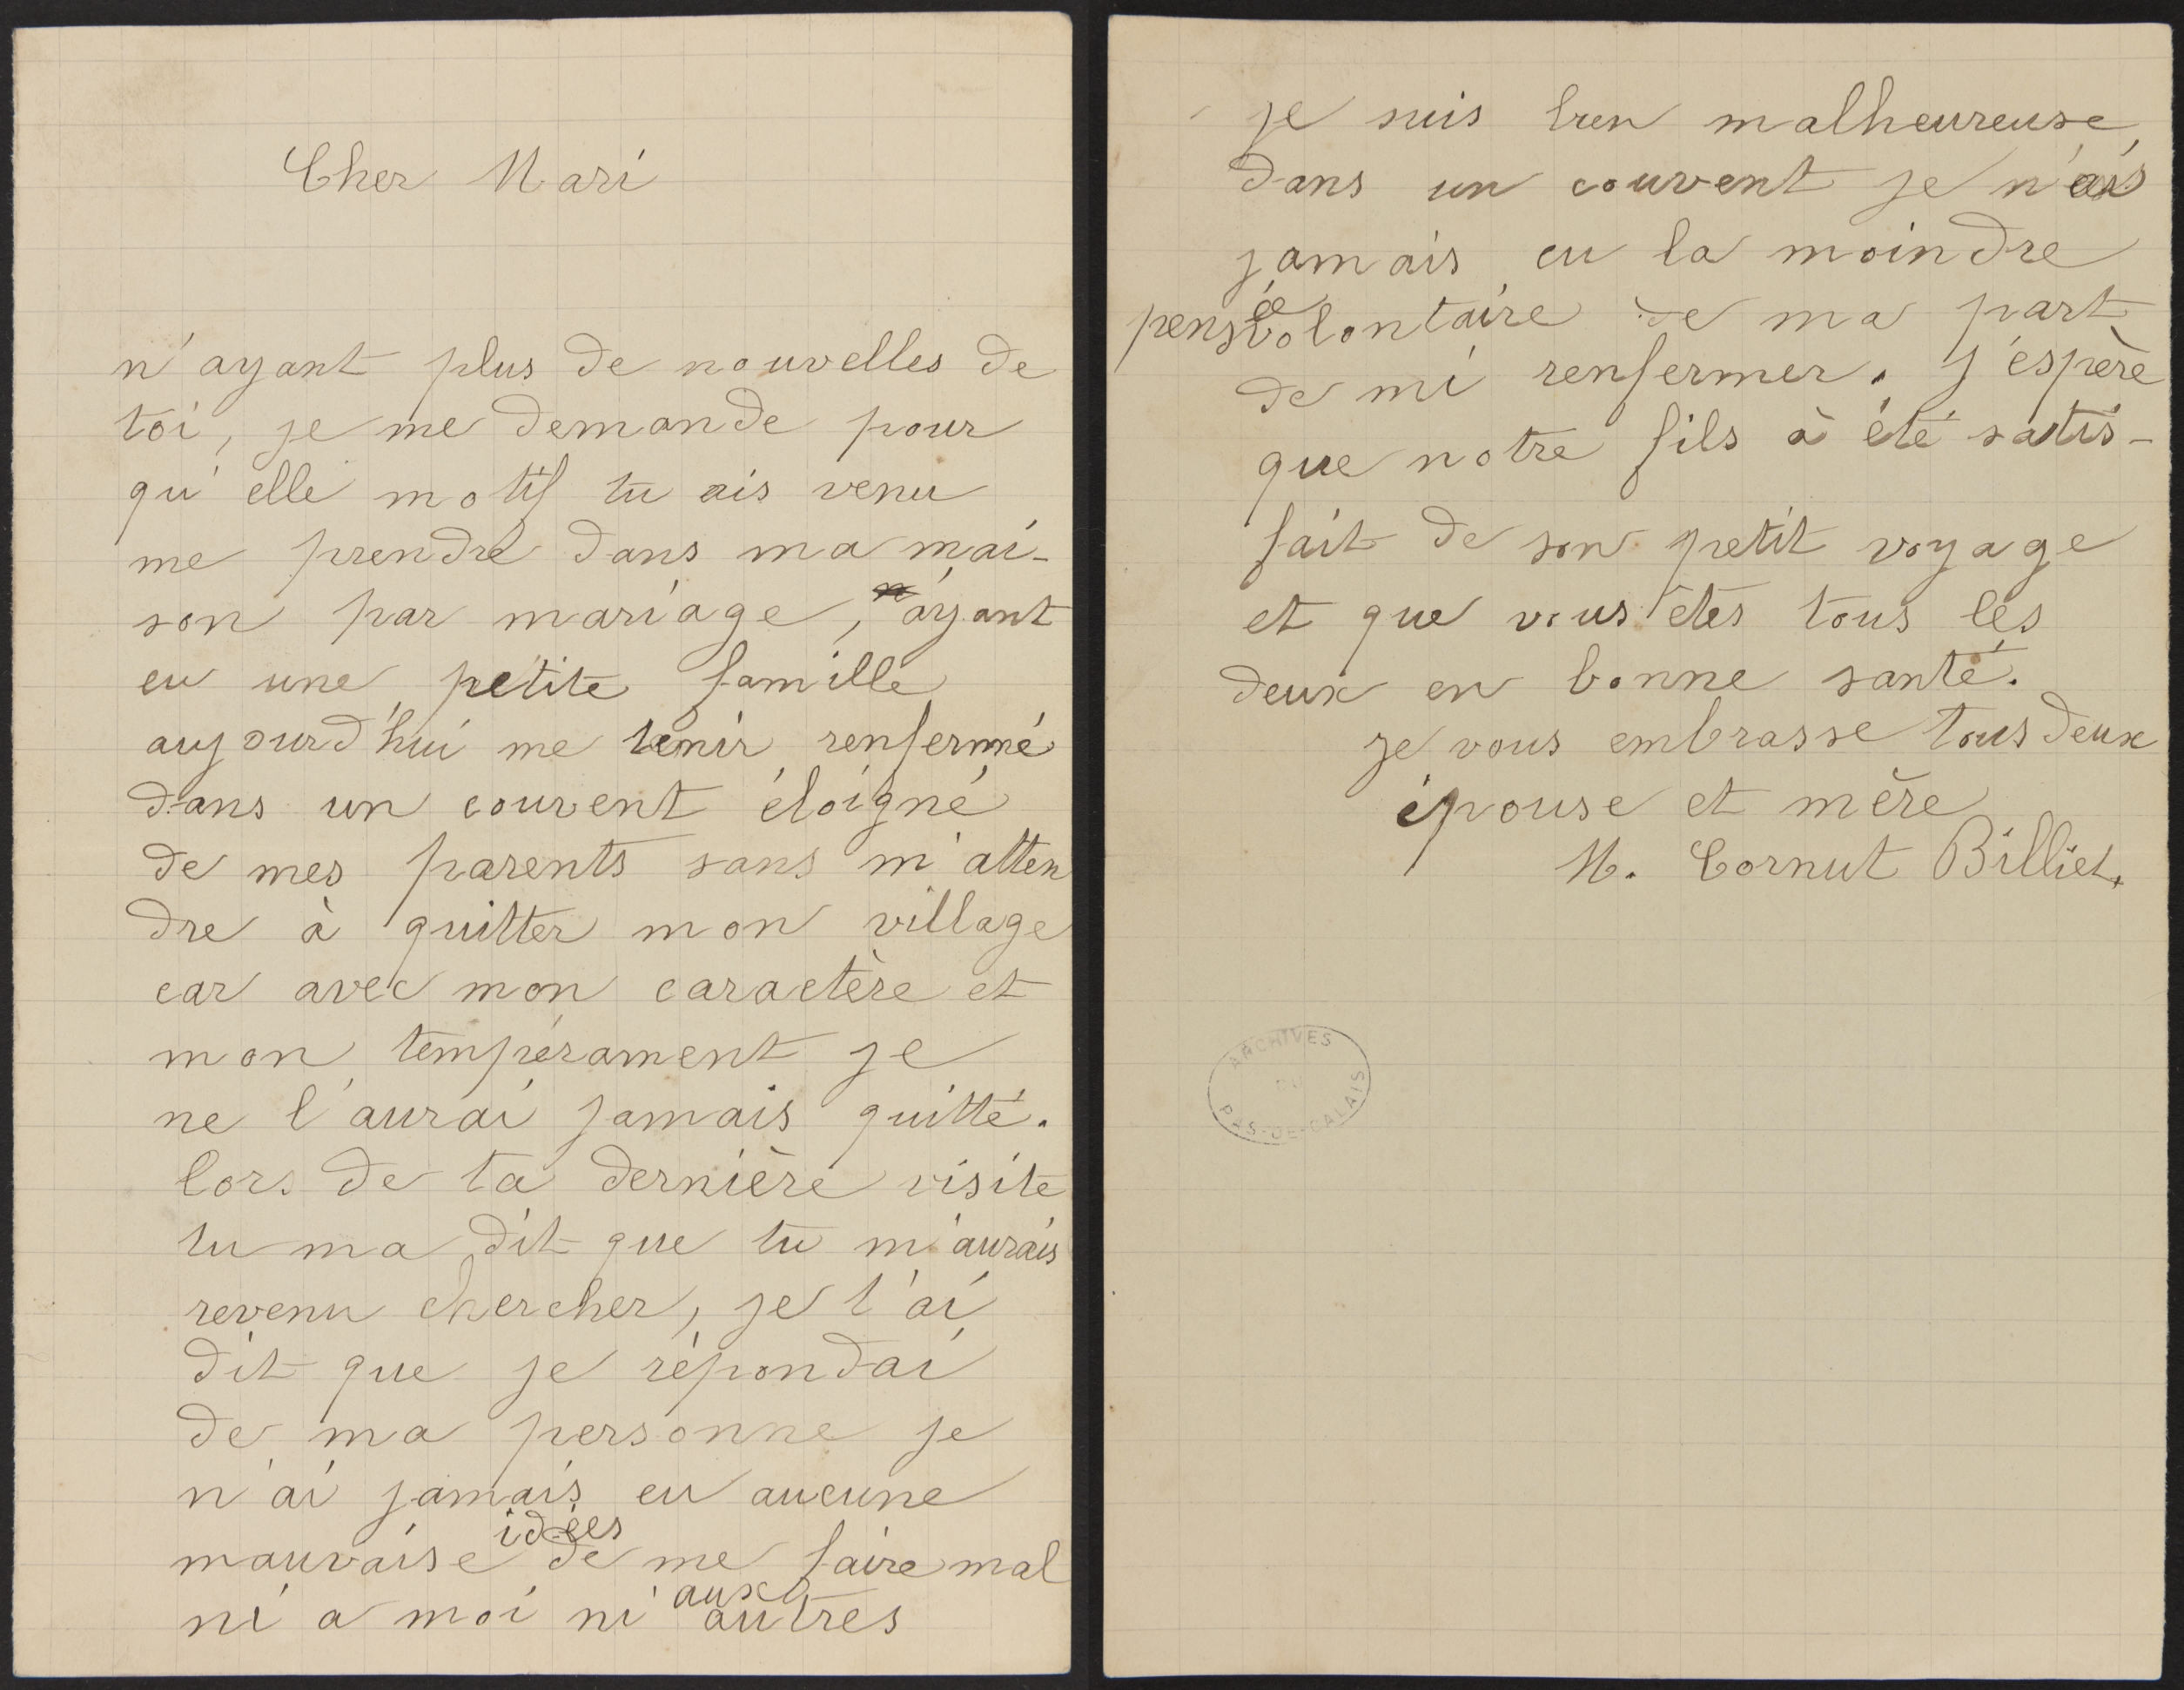 Cher Mari
n'ayant plus de nouvelles de
toi, je me demande pour
qu'elle motif tu ais venu
me prendre dans ma mai-
son par mariage, ayant
eu une petite famille
aujourd'hui me tenir renfermé
dans un couvent éloigné
de mes parents sans m'atten
dre à quitter mon village
car avec mon caractère et
mon tempérament je
ne l'aurai jamais quitté.
lors de ta dernière visite
tu ma dit que tu m'aurais
revenu chercher, je t'ai
dit que je répondai
de ma personne je
n'ai jamais eu aucune
mauvaise idées de me faire mal
ni a moi ni aux autres
je suis bien malheureuse
dans un couvent je n'ais
jamais eu la moindre
pensée volontaire de ma part
de mi renfermer. j'espère
que notre fils à été satis-
fait de son petit voyage
et que vous êtes tous les
deux en bonne santé.
je vous embrasse tous deux
épouse et mère
M. Cornut Billiet.
ARCHIVES
DU
PAS-DE-CALAIS